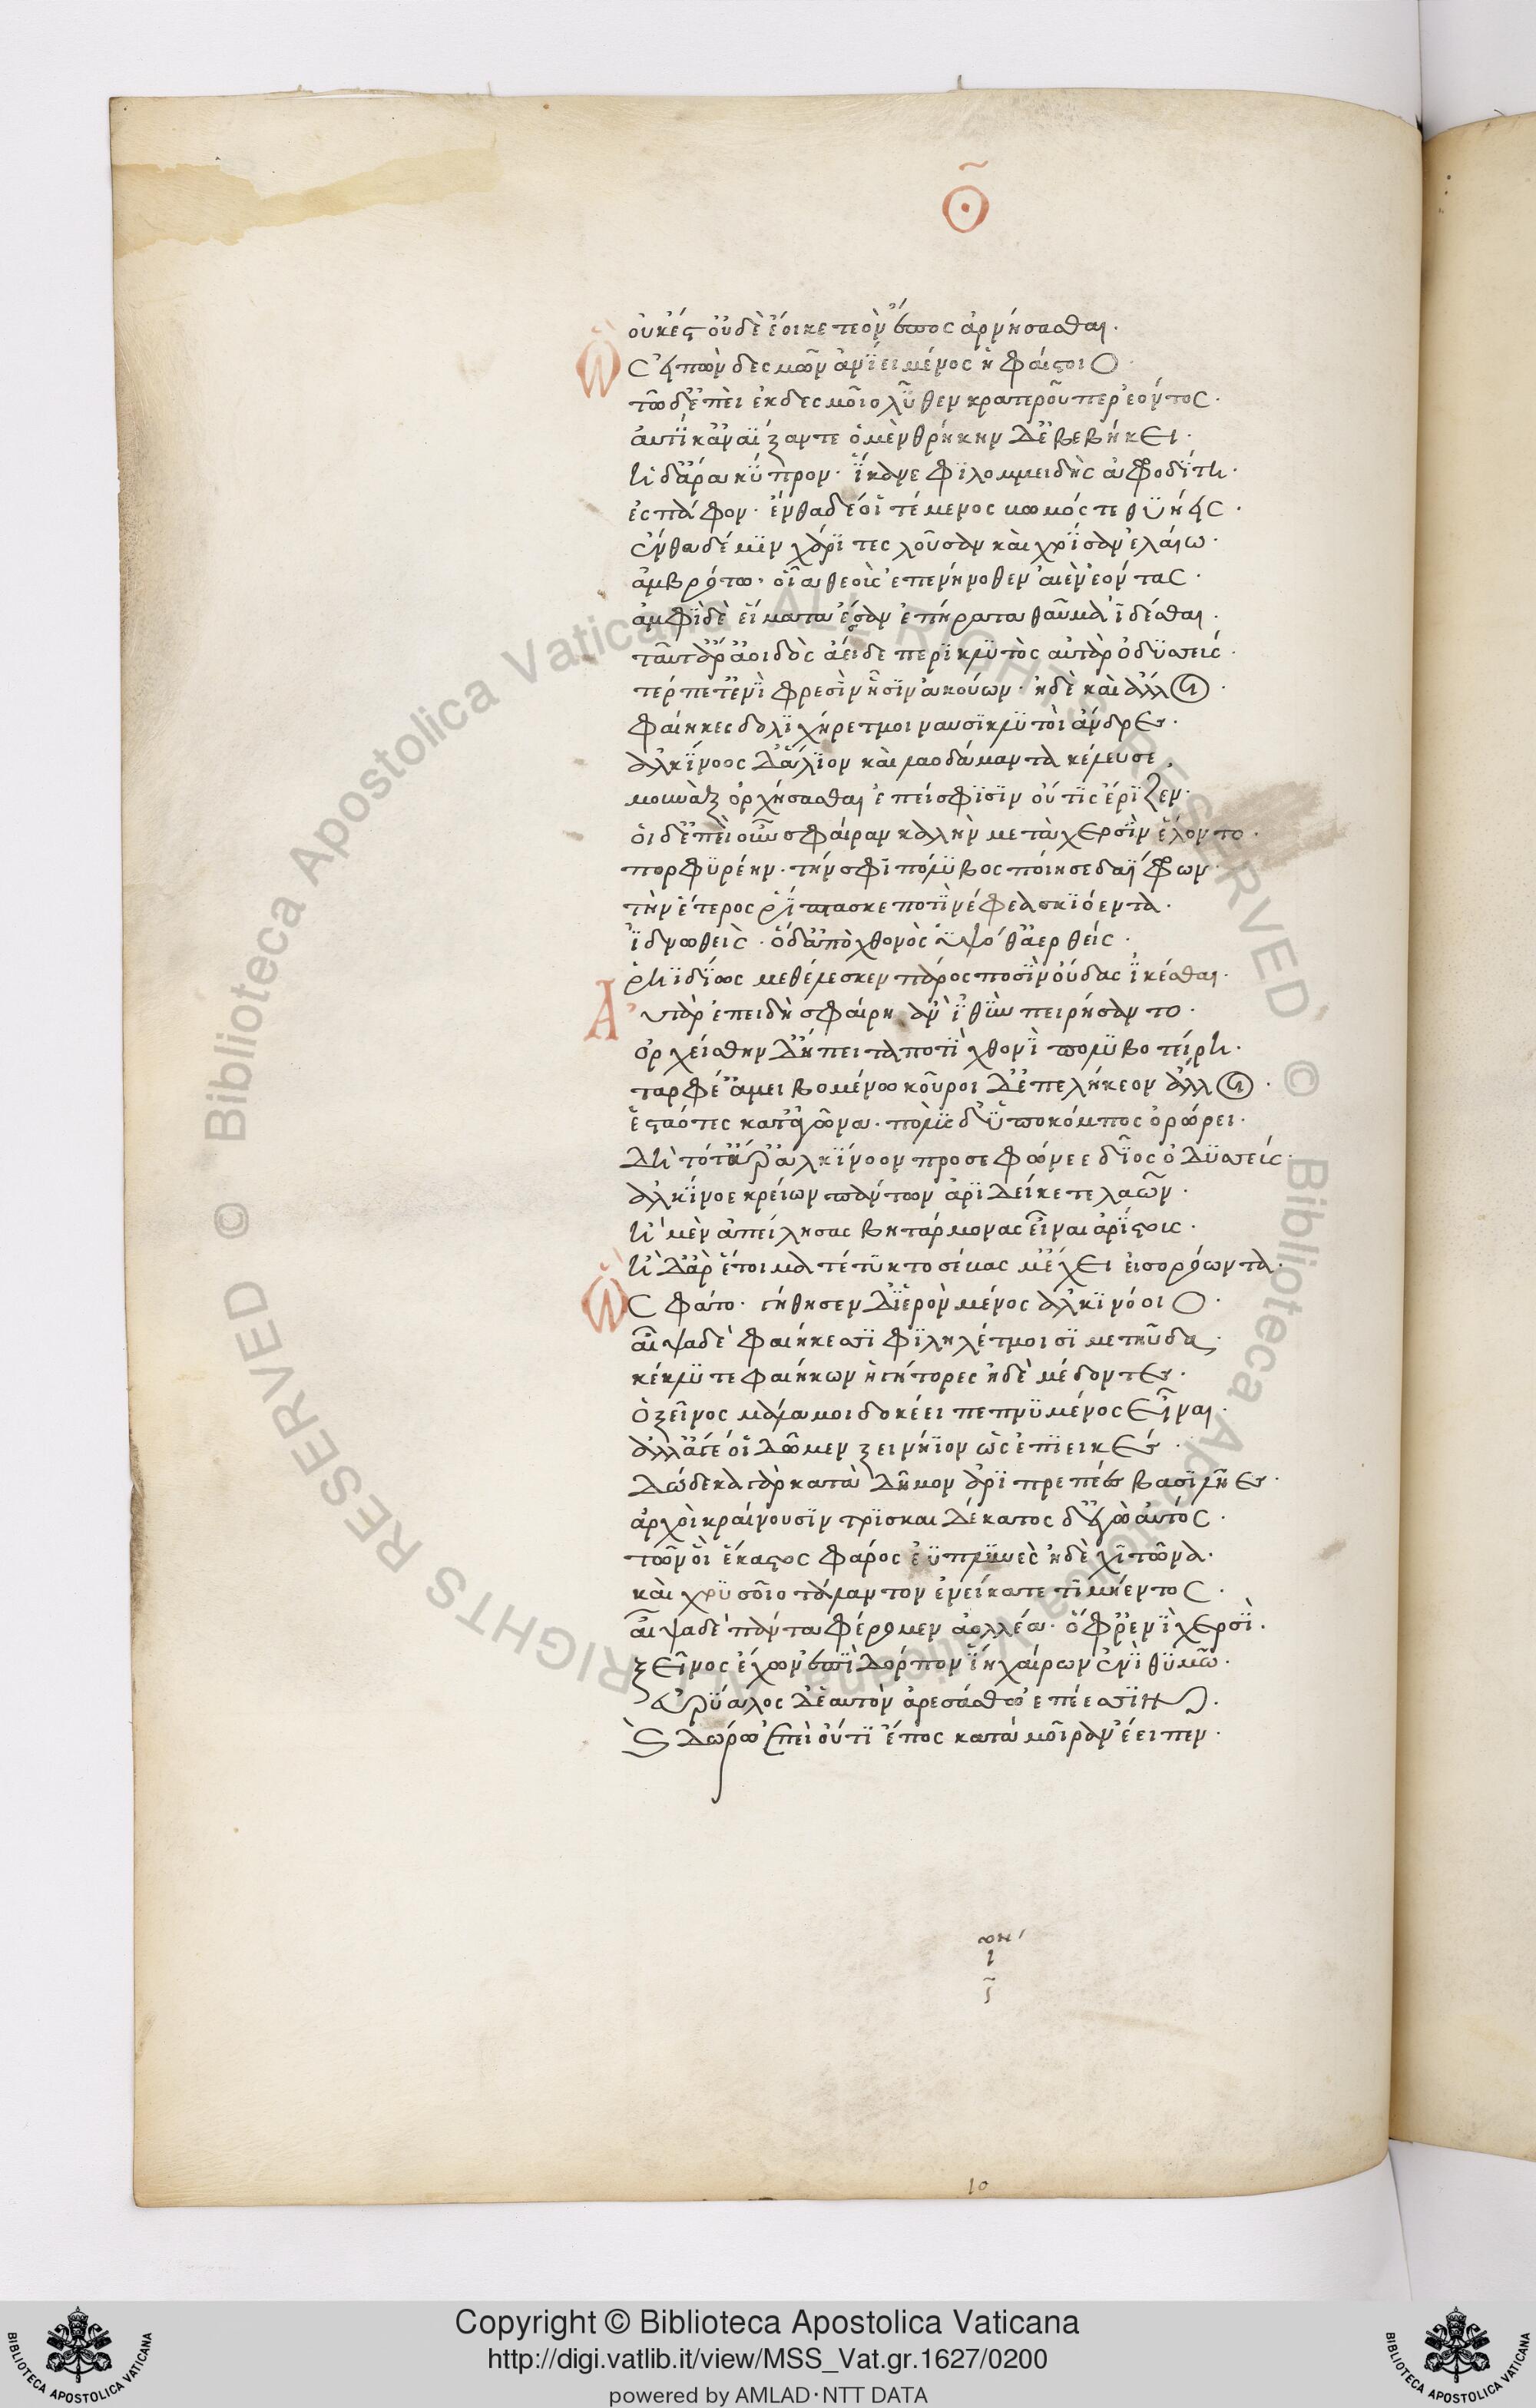 Θ
οὐκέστ' οὐδὲ ἔοικε τεὸν ἔπος ἀρνήσασθαι·
Ὣς εἰπὼν δεσμῶν ἀνΐει μένος ἡφαίστοιο·
τὼ δ' ἐπεὶ ἐκ δεσμοῖο λῦθεν κρατεροῦ περ ἐόντος·
αὐτίκ' ἀναΐξαντε ὁ μὲν θρήκην δὲ βεβήκει·
ἡ δ' ἄρα κύπρον· ἵκανε φιλομμειδὴς ἀφροδίτη·
ἐς πάφον· ἔνθα δέ οἱ τέμενος βωμός τε θυήεις·
ἔνθα δέ μιν χάριτες λοῦσαν καὶ χρῖσαν ἐλαίω·
ἀμβρότω· οἷα θεοὺς ἐπενήνοθεν αἰὲν ἐόντας·
ἀμφὶ δὲ εἵματα ἕσσαν ἐπήρατα θαῦμα ἰδέσθαι·
ταῦτ' ἄρ' ἀοιδὸς ἄειδε περικλυτὸς αὐτὰρ ὀδυσσεύς·
τέρπετ' ἐνὶ φρεσὶν ᾗσιν ἀκούων· ἠδὲ καὶ ἄλλοι·
φαίηκες δολιχήρετμοι ναυσικλυτοὶ ἄνδρες·
ἀλκίνοος δ' ἅλιον καὶ λαοδάμαντα κέλευσε
μουνὰξ ὀρχήσασθαι ἐπεί σφισιν οὔτις ἔριζεν·
οἱ δ' ἐπεὶ οὖν σφαῖραν καλὴν μετὰ χερσὶν ἕλοντο·
πορφυρέην· τήν σφι πόλυβος ποίησε δαΐφων·
τὴν ἕτερος ῥίπτασκε ποτὶ νέφεα σκιόεντα·
ἰδνωθεὶς· ὁ δ' ἀπὸ χθονὸς ὑψόθ' ἀερθείς·
ῥηϊδίως μεθέλεσκεν πάρος ποσὶν οὖδας ἱκέσθαι·
Αὐτὰρ ἐπειδὴ σφαίρη ἀν' ἰθὺν πειρήσαντο·
ὀρχείσθην δ' ἤπειτα ποτὶ χθονὶ πολυβοτείρη·
ταρφέ' ἀμειβομένω κοῦροι δ' ἐπελήκεον ἄλλοι·
ἑσταότες κατ' ἀγῶνα· πολὺς δ' ὑπὸ κόμπος ὀρώρει·
δὴ τότ' ἄρ' ἀλκίνοον προσεφώνεε δῖος ὀδυσσεύς·
ἀλκίνοε κρείων πάντων ἀριδείκετε λαῶν·
ἠ μὲν ἀπείλησας βητάρμονας εἶναι ἀρίστους·
ἠ δ' ἄρ' ἕτοιμα τέτυκτο σέβας μ' ἔχει εἰσορόωντα·
Ὣς φάτο· γήθησεν δ' ἱερὸν μένος ἀλκινόοιο·
αἶψα δὲ φαιήκεσσι φιληρέτμοισι μετηύδα·
κέκλυτε φαιήκων ἡγήτορες ἠδὲ μέδοντες·
ὁ ξεῖνος μάλα μοι δοκέει πεπνυμένος εἶναι·
ἀλλ' ἄγε οἱ δῶμεν ξεινήϊον ὡς ἐπιεικές·
δώδεκα γὰρ κατὰ δῆμον ἀριπρεπέες βασιλῆες·
ἀρχοὶ κραίνουσιν τρισκαιδέκατος δ' ἐγὼ αὐτός·
τῶν οἱ ἕκαστος φάρος ἐϋπλυνὲς ἠδὲ χιτῶνα·
καὶ χρυσοῖο τάλαντον ἐνείκατε τιμήεντος·
αἶψα δὲ πάντα φέρωμεν ἀολλέα· ὄφρ' ἐνὶ χερσὶ·
ξεῖνος ἔχων ἐπὶ δόρπον ἴη χαίρων ἐνὶ θυμῶ·
εὐρύαλος δὲ αὐτὸν ἀρεσάσθω ἐπέεσσι
δώρω ἐπεὶ οὔτι ἔπος κατὰ μοῖραν ἔειπεν·
10
Copyright © Biblioteca Apostolica Vaticana
http://digi.vatlib.it/view/MSS_Vat.gr.1627/0200
powered by AMLAD·NTT DATA